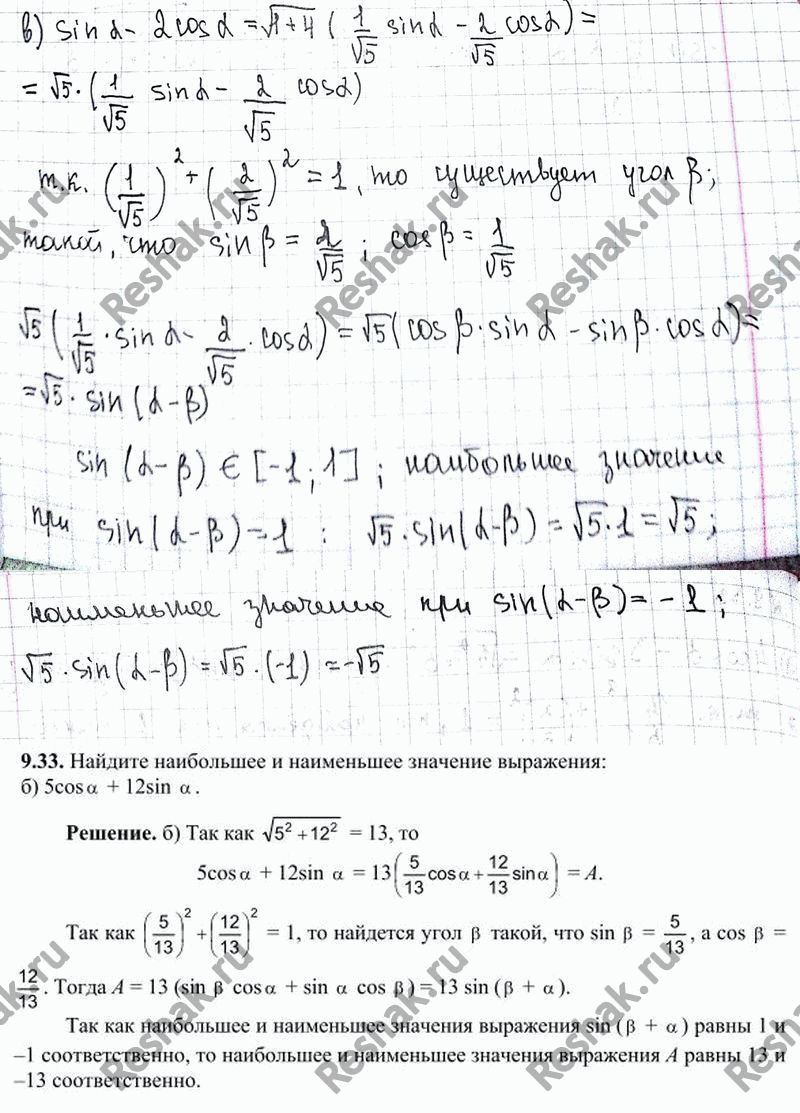 в) sin α - 2cos α = √(1+4) (1/√5 sin α - 2/√5 cos α) =
= √5 · (1/√5 sin α - 2/√5 cos α)
т.к. (1/√5)² + (2/√5)² = 1, то существует угол β;
такой, что sin β = 2/√5 ; cos β = 1/√5
√5 (1/√5 · sin α - 2/√5 · cos α) = √5 (cos β · sin α - sin β · cos α) =
= √5 · sin (α - β)
sin (α - β) ∈ [-1; 1] ; наибольшее значение
при sin (α - β) = 1 : √5 · sin (α - β) = √5 · 1 = √5 ;
наименьшее значение при sin (α - β) = - 1 ;
√5 · sin (α - β) = √5 · (-1) = -√5
9.33. Найдите наибольшее и наименьшее значение выражения:
б) 5cos α + 12sin α.
Решение. б) Так как √(5² + 12²) = 13, то
5cos α + 12sin α = 13(5/13 cos α + 12/13 sin α) = A.
Так как (5/13)² + (12/13)² = 1, то найдется угол β такой, что sin β = 5/13, а cos β =
12/13. Тогда A = 13 (sin β cos α + sin α cos β) = 13 sin (β + α).
Так как наибольшее и наименьшее значения выражения sin (β + α) равны 1 и
–1 соответственно, то наибольшее и наименьшее значения выражения A равны 13 и
–13 соответственно.
Reshak.ru
Reshak.ru
Reshak.ru
Reshak.ru
Reshak.ru
Reshak.ru
Reshak.ru
Reshak.ru